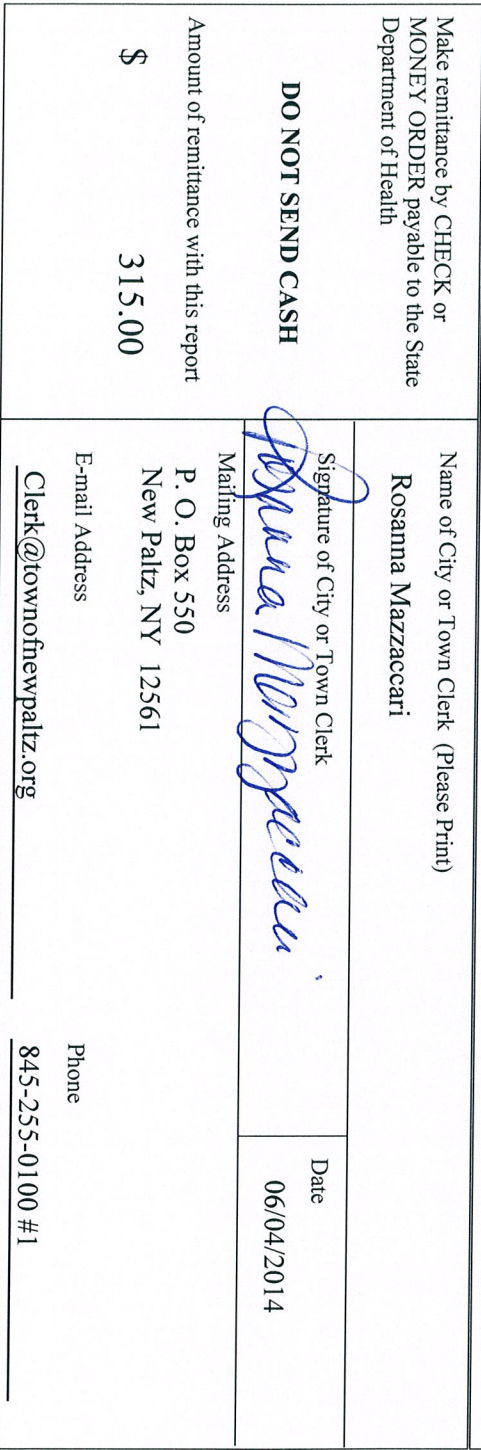 Make remittance by CHECK or
MONEY ORDER payable to the State
Department of Health
DO NOT SEND CASH
Amount of remittance with this report
$ 315.00
Name of City or Town Clerk (Please Print)
Rosanna Mazzaccari
Signature of City or Town Clerk
Rosanna Mazzaccari
Date
06/04/2014
Mailing Address
P. O. Box 550
New Paltz, NY 12561
E-mail Address
Clerk@townofnewpaltz.org
Phone
845-255-0100 #1